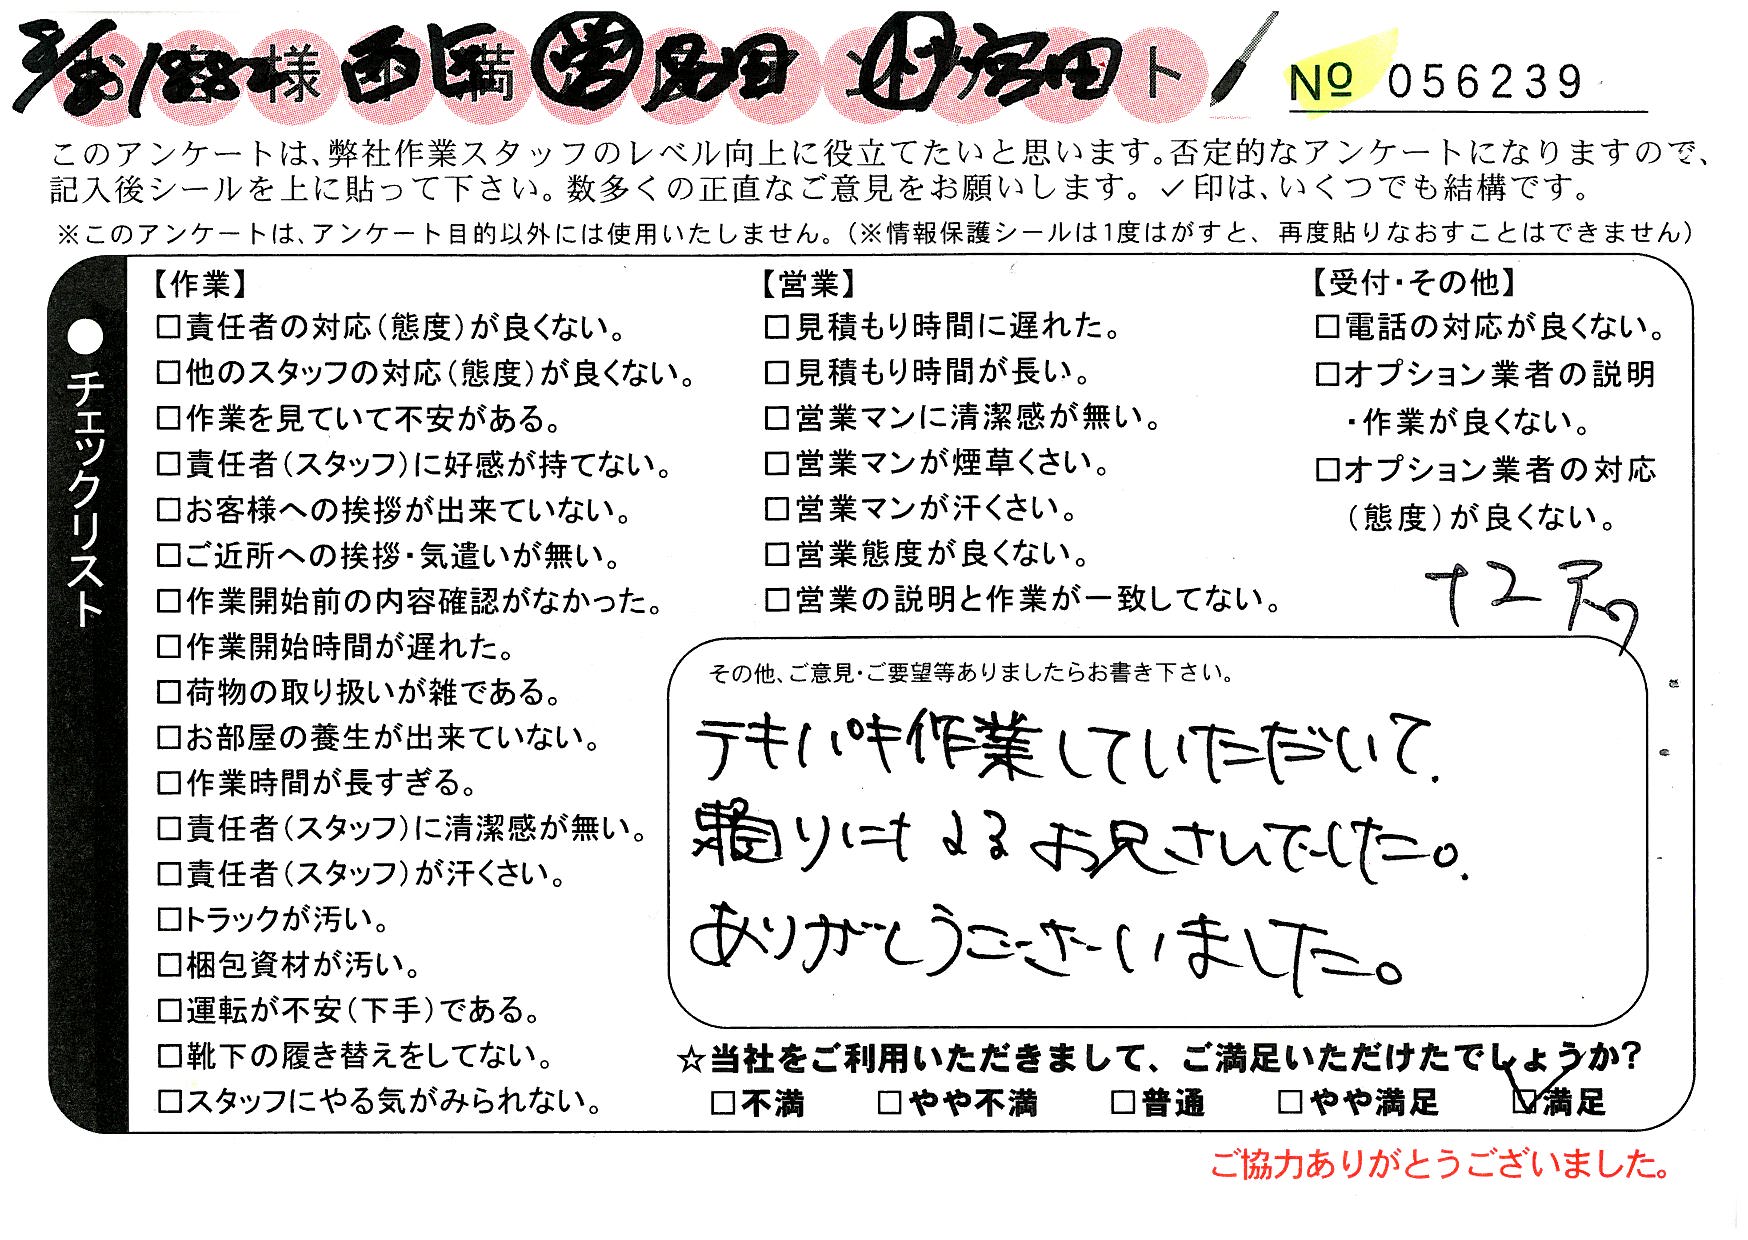 お客様不満足度アンケート
西区 営 冨田 作 宮田
№ 056239
このアンケートは、弊社作業スタッフのレベル向上に役立てたいと思います。否定的なアンケートになりますので、
記入後シールを上に貼って下さい。数多くの正直なご意見をお願いします。✓印は、いくつでも結構です。
※このアンケートは、アンケート目的以外には使用いたしません。（※情報保護シールは1度はがすと、再度貼りなおすことはできません）
●チェックリスト
【作業】
□責任者の対応（態度）が良くない。
□他のスタッフの対応（態度）が良くない。
□作業を見ていて不安がある。
□責任者（スタッフ）に好感が持てない。
□お客様への挨拶が出来ていない。
□ご近所への挨拶・気遣いが無い。
□作業開始前の内容確認がなかった。
□作業開始時間が遅れた。
□荷物の取り扱いが雑である。
□お部屋の養生が出来ていない。
□作業時間が長すぎる。
□責任者（スタッフ）に清潔感が無い。
□責任者（スタッフ）が汗くさい。
□トラックが汚い。
□梱包資材が汚い。
□運転が不安（下手）である。
□靴下の履き替えをしてない。
□スタッフにやる気がみられない。
【営業】
□見積もり時間に遅れた。
□見積もり時間が長い。
□営業マンに清潔感が無い。
□営業マンが煙草くさい。
□営業マンが汗くさい。
□営業態度が良くない。
□営業の説明と作業が一致してない。
【受付・その他】
□電話の対応が良くない。
□オプション業者の説明
・作業が良くない。
□オプション業者の対応
（態度）が良くない。
その他、ご意見・ご要望等ありましたらお書き下さい。
テキパキ作業していただいて、
頼りによるお兄さんでした。
ありがとうございました。
☆当社をご利用いただきまして、ご満足いただけたでしょうか?
□不満 □やや不満 □普通 □やや満足 ☑満足
ご協力ありがとうございました。